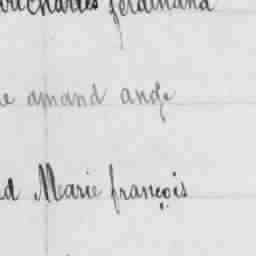 Charles ferdinand
amand ange
d Marie françois